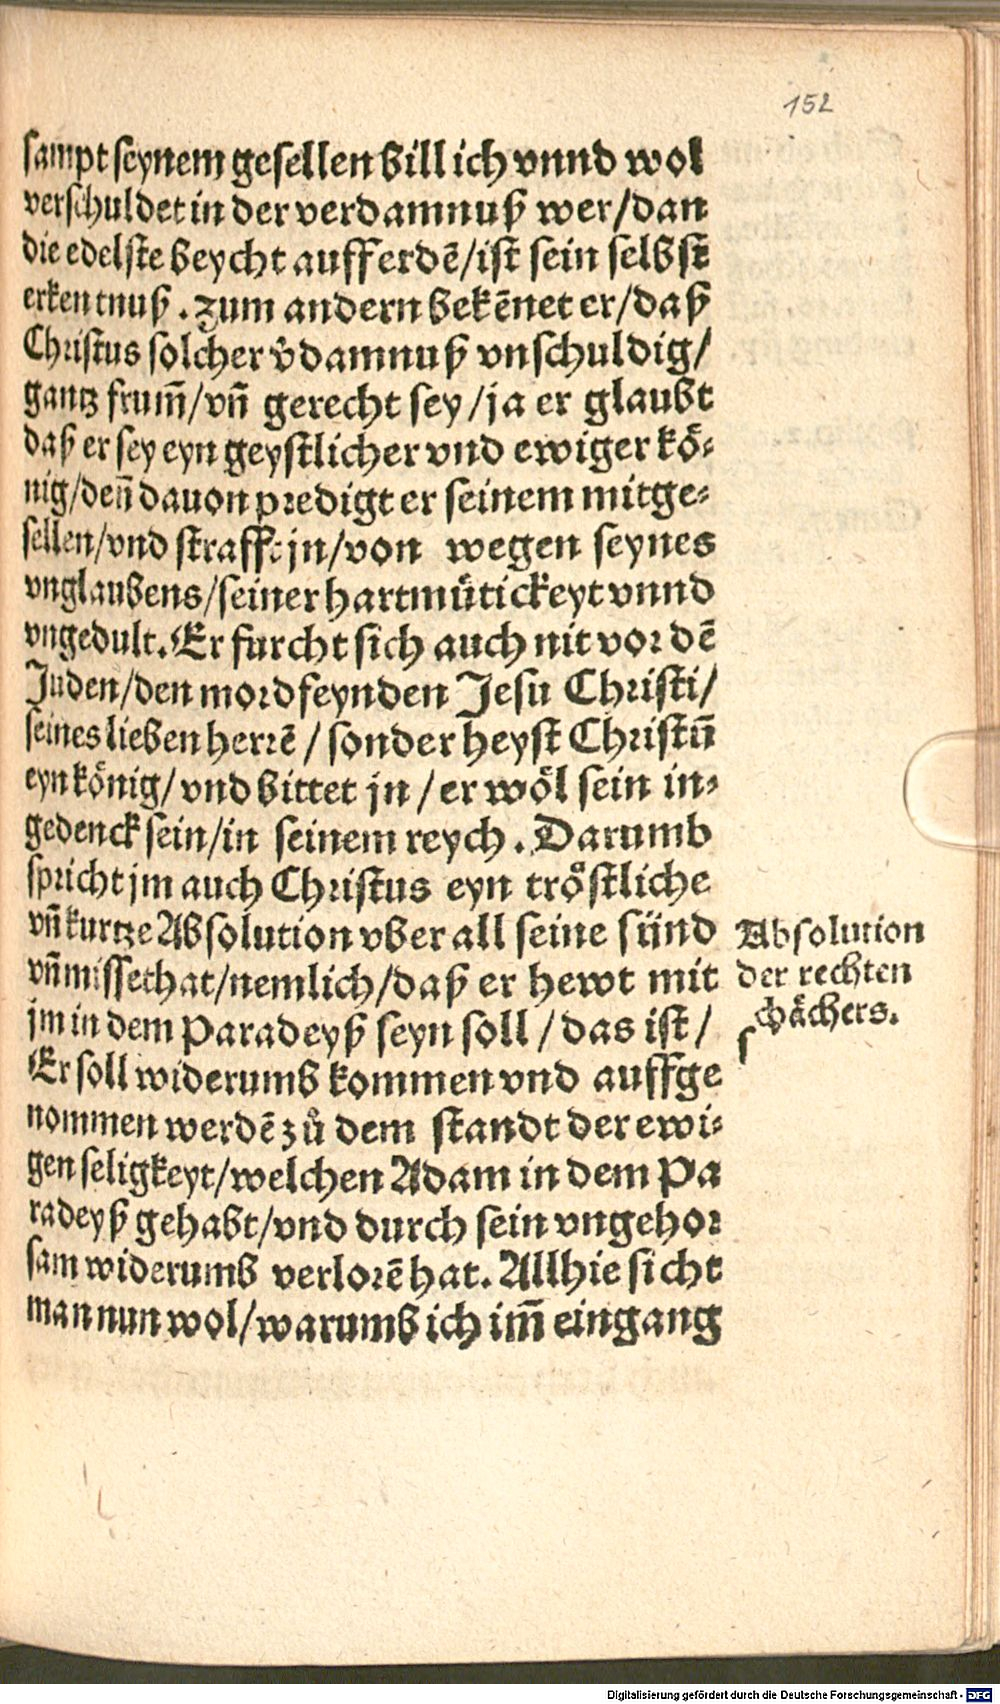 152
sampt seynem gesellen billich vnnd wol
verschuldet in der verdamnuß wer/dan
die edelste beycht auff erdē/ist sein selbst
erkentnuß. zum andern bekēnet er/daß
Christus solcher v̓damnuß vnschuldig/
gantz frum̄/vn̄ gerecht sey/ja er glaubt
daß er sey eyn geystlicher vnd ewiger kö-
nig/den̄ dauon predigt er seinem mitge-
sellen/vnd strafft jn/von wegen seynes
vnglaubens/seiner hartmütickeyt vnnd
vngedult. Er furcht sich auch nit vor dē
Juden/den mordfeynden Jesu Christi/
seines lieben herrē/sonder heyst Christū
eyn könig/vnd bittet jn/er wöl sein in-
gedenck sein/in seinem reych. Darumb
spricht jm auch Christus eyn tröstliche
vn̄ kurtze Absolution vber all seine sünd
vn̄ missethat/nemlich/daß er hewt mit
jm in dem Paradeyß seyn soll/das ist/
Er soll widerumb kommen vnd auffge
nommen werdē zů dem standt der ewi-
gen seligkeyt/welchen Adam in dem Pa
radeyß gehabt/vnd durch sein vngehor
sam widerumb verlorē hat. Allhie sicht
man nun wol/warumb ich im̄ eingang
Absolution
der rechten
schächers.
Digitalisierung gefördert durch die Deutsche Forschungsgemeinschaft - DFG